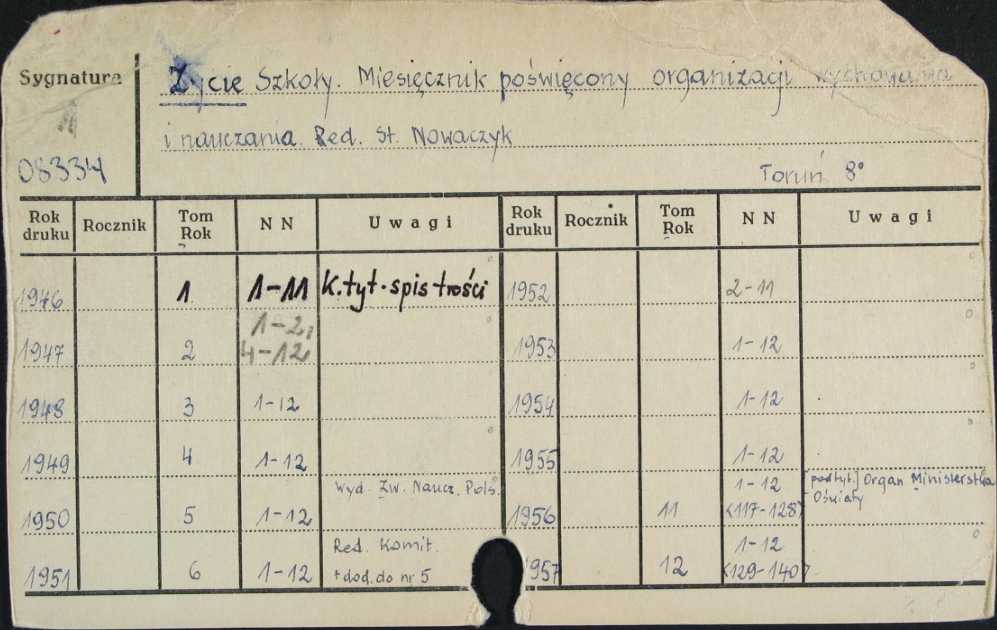 Sygnatura
08334
Życie Szkoły. Miesięcznik poświęcony organizacji wychowania
i nauczania. Red. St. Nowaczyk
Toruń 8°
Rok druku Rocznik Tom Rok NN Uwagi Rok druku Rocznik Tom Rok NN Uwagi
1946 1 1-11 K.tyt.-spis treści 1952 2-11
1947 2 1-2, 4-12 1953 1-12
1948 3 1-12 1954 1-12
1949 4 1-12 1955 1-12
1950 5 1-12 Wyd. Zw. Naucz. Pols. 1956 11 1-12 <117-128> [podtyt.] Organ Ministerstwa Oświaty
1951 6 1-12 Red. Komit. +dod. do nr 5 1957 12 1-12 <129-140>